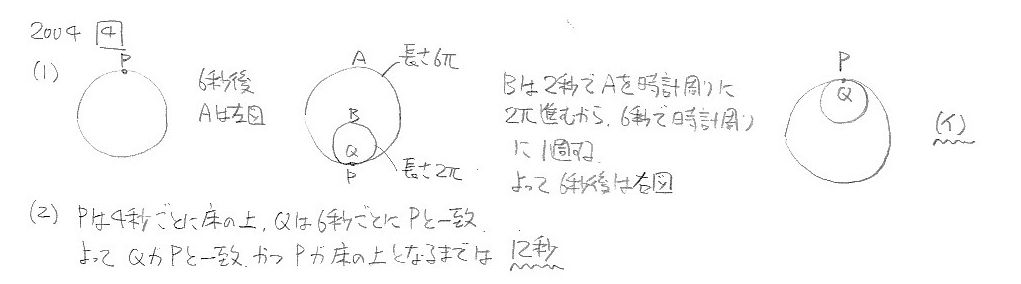 2004 4
(1)
P
6秒後
Aは左図
A
長さ6π
B
Q
P
長さ2π
Bは2秒でAを時計周りに
2π進むから、6秒で時計周り
に1周する
よって6秒後は右図
P
Q
(イ)
(2) Pは4秒ごとに床の上、Qは6秒ごとにPと一致
よって QがPと一致、かつPが床の上となるまでは 12秒